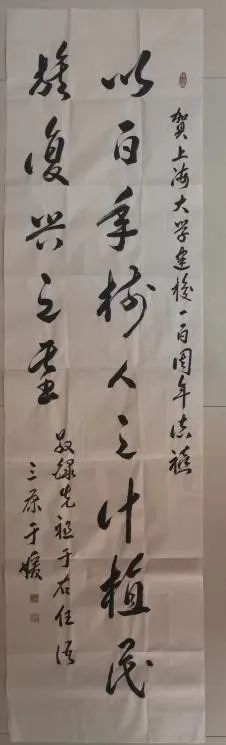 贺上海大学建校一百周年志禧
以百年树人之计植民
族復兴之基
敬録先祖于右任语
三原于媛